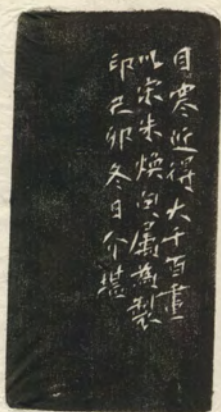 目寒近得大千百畫
以宋米煥屬為製
印己卯冬日介堪